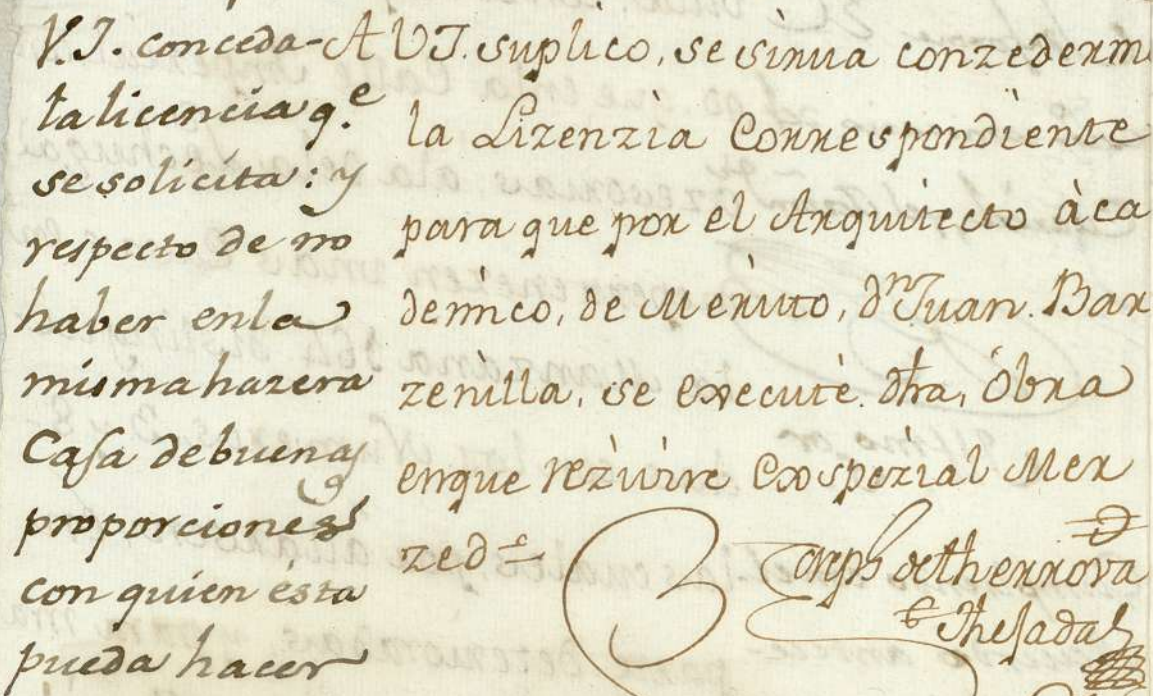 V.I. conceda-
la licencia q.e
se solicita: y
respecto de no
haber en la
misma hazera
Casa de buenas
proporciones
con quien ésta
pueda hacer
A VI. suplico, se sirva conzederm
la Lizenzia Correspondiente
para que por el Arquitecto àca
demico, de Merito, dn Juan. Bar
zenilla, se execute. dha, Obra
en que rezivire Exspezial Mer
zed
Joseph de
Thejada